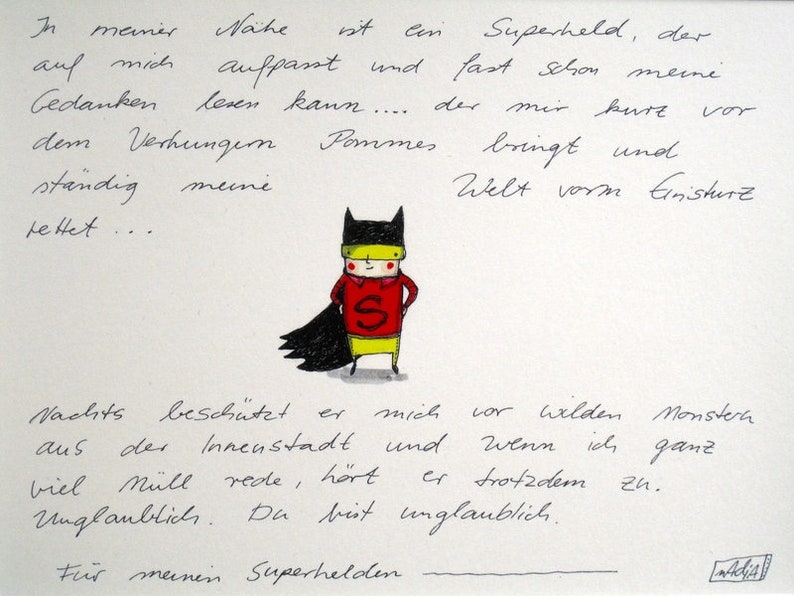 In meiner Nähe ist ein Superheld, der
auf mich aufpasst und fast schon meine
Gedanken lesen kann.... der mir kurz vor
dem Verhungern Pommes bringt und
ständig meine Welt vorm Einsturz
rettet...
S
Nachts beschützt er mich vor wilden Monstern
aus der Innenstadt und wenn ich ganz
viel Müll rede, hört er trotzdem zu.
Unglaublich. Du bist unglaublich.
Für meinen Superhelden
nAdjA